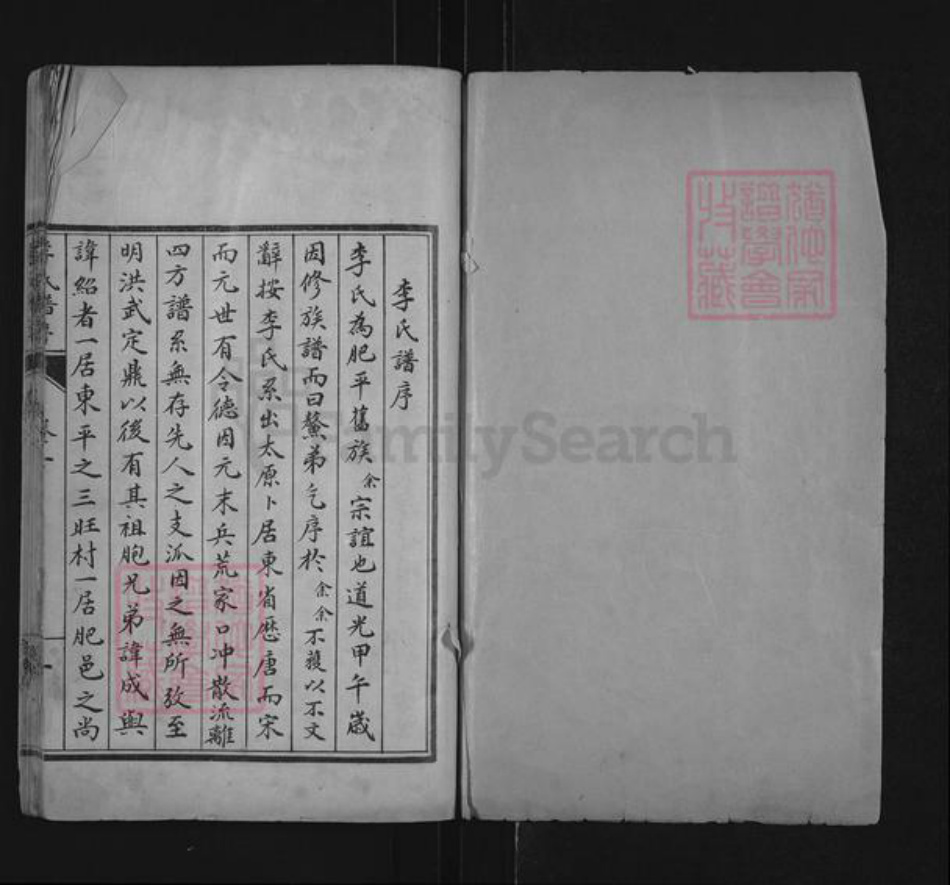 李氏譜序
李氏為肥平舊族余宗誼也道光甲午歲
因修族譜而曰鰲弟乞序於余余不獲以不文
辭按李氏系出太原卜居東省歷唐而宋
而元世有令德因元末兵荒家口冲散流離
四方譜系無存先人之支派因之無所攷至
明洪武定鼎以後有其祖胞兄弟諱成與
諱紹者一居東平之三旺村一居肥邑之尚
FamilySearch